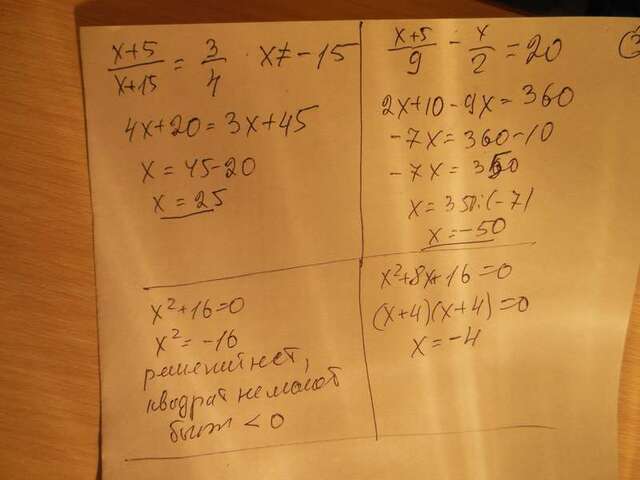 x+5/x+15 = 3/4 x ≠ -15
4x+20=3x+45
x = 45-20
x = 25
x+5/9 - x/2 = 20
2x+10-9x=360
-7x=360-10
-7x=350
x=350:(-7)
x=-50
x²+16=0
x²=-16
решений нет,
квадрат не может
быть <0
x²+8x+16=0
(x+4)(x+4)=0
x=-4